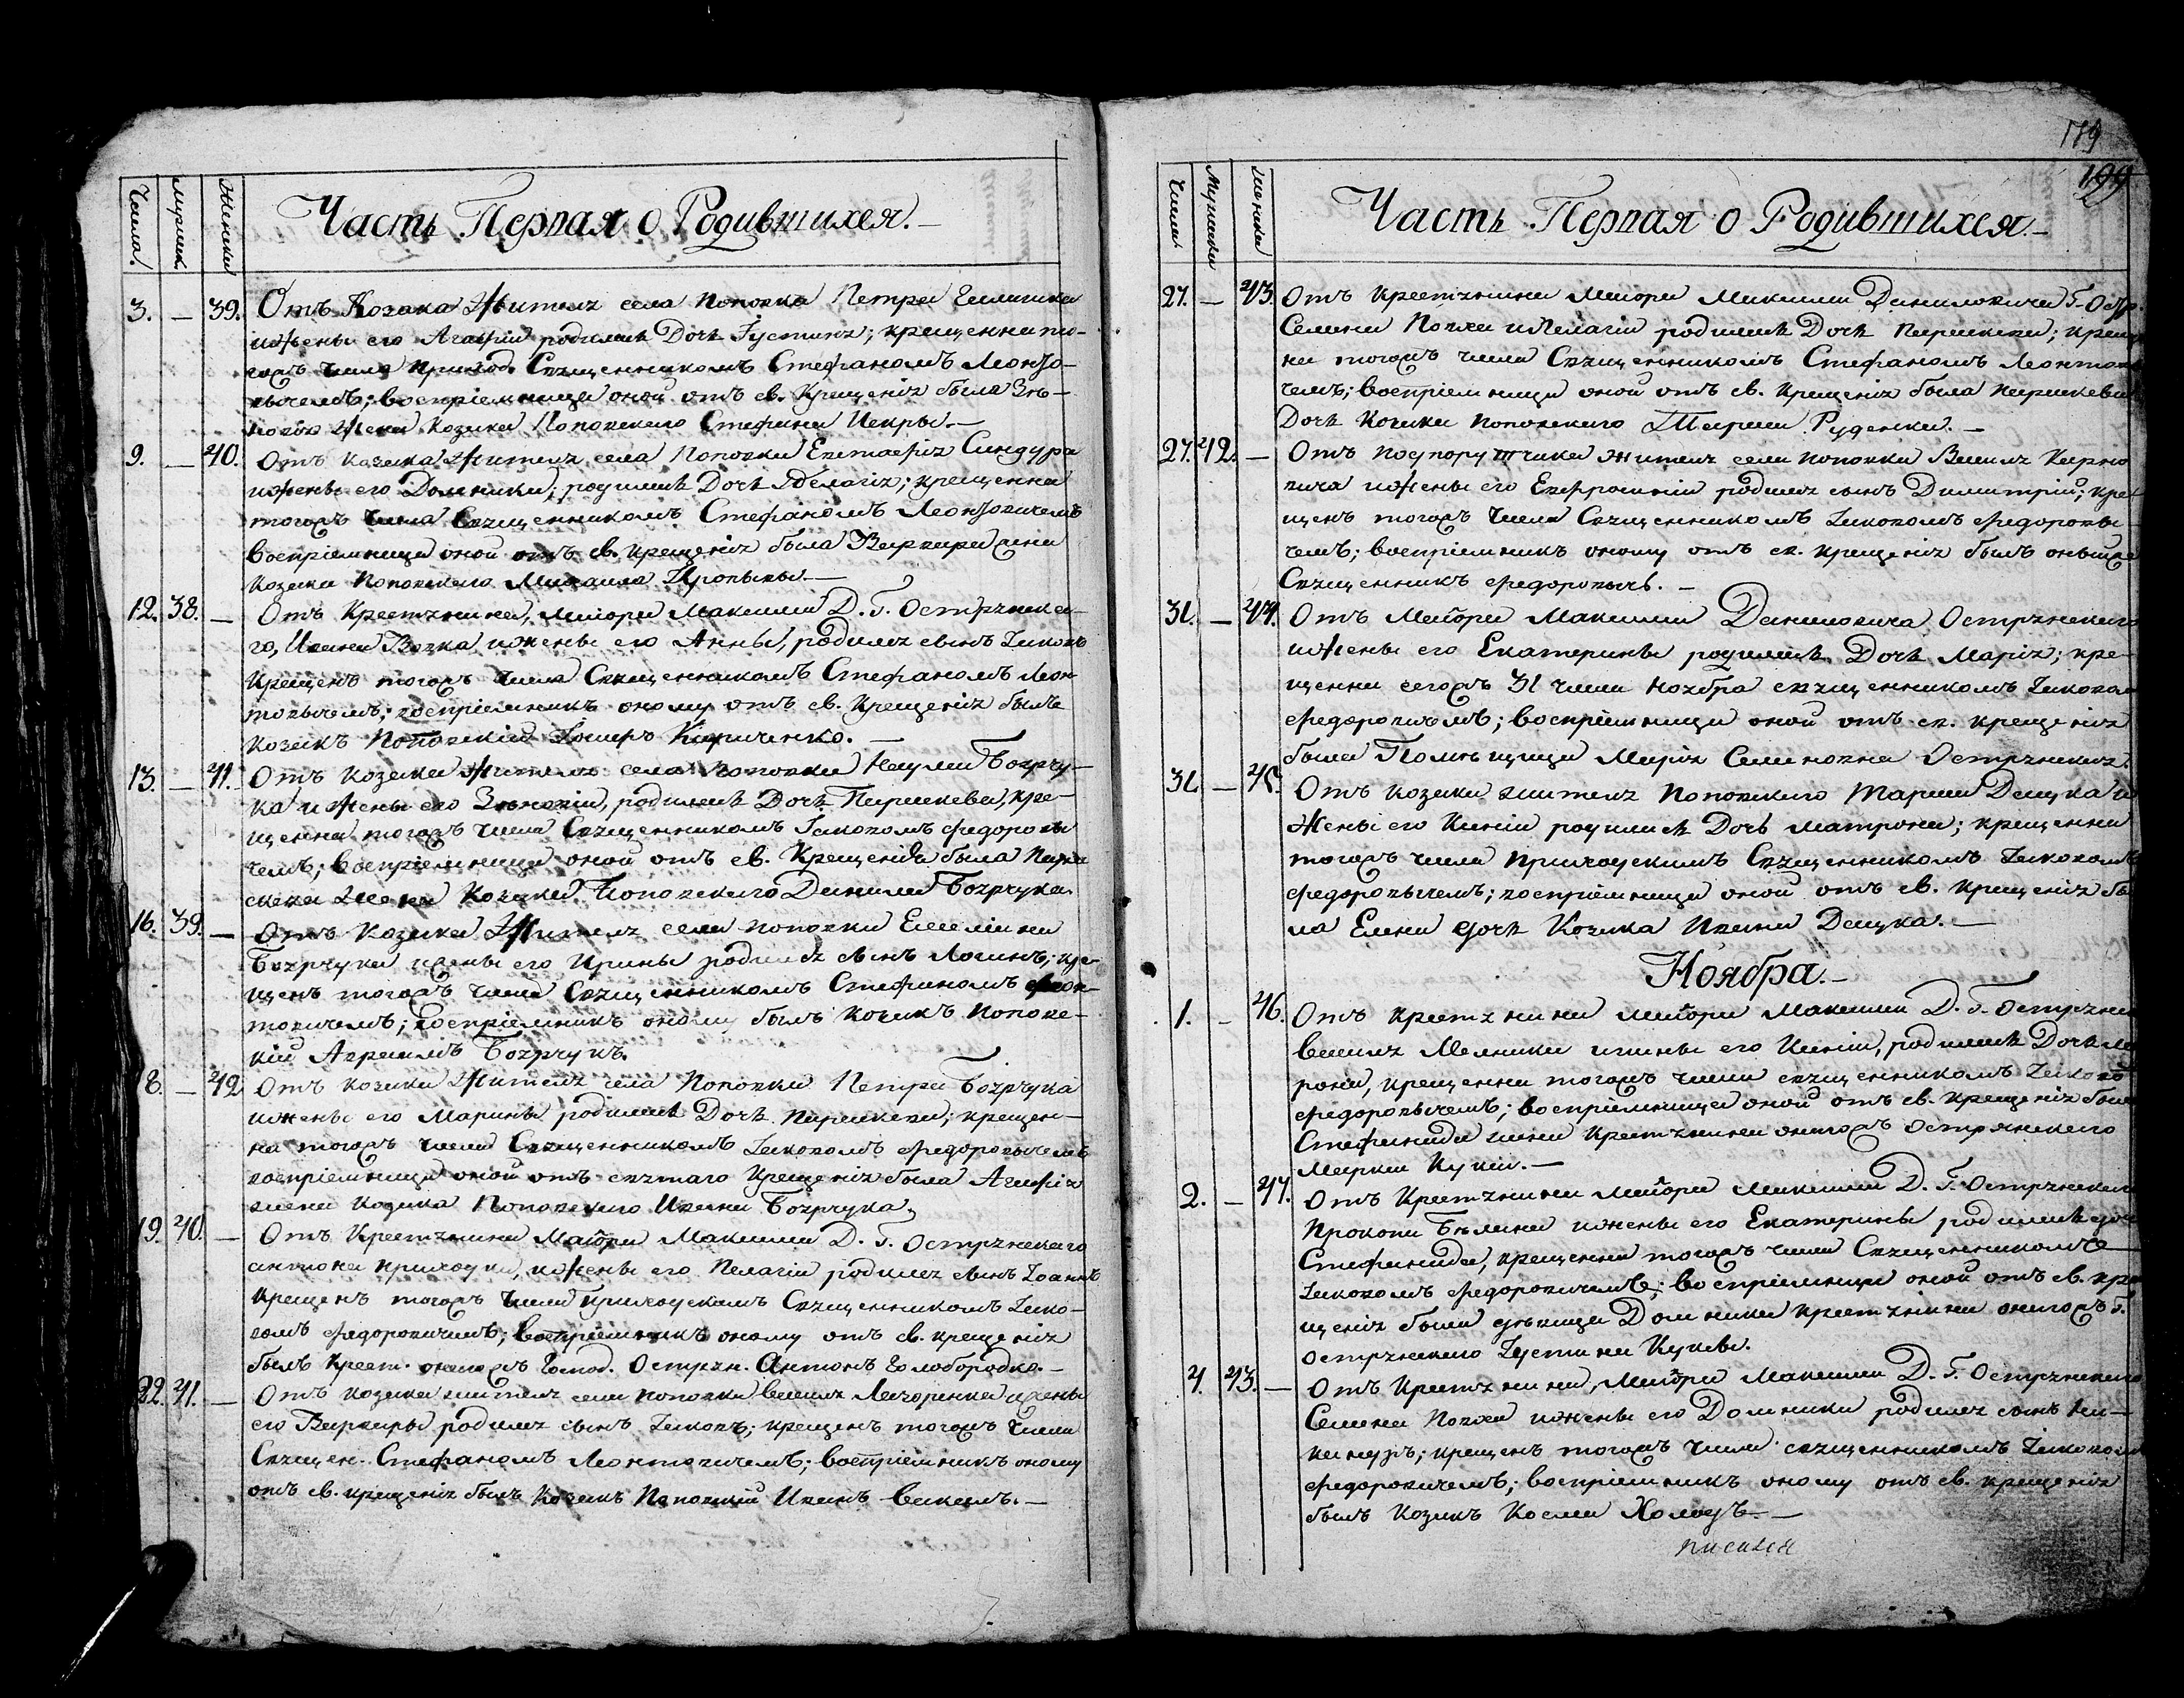 Числа.
Мужеск.
Женски
Часть Первая о Родившихся. —
3. — 39. Отъ Козака Жителя села Поповки Петра
и жены его Агафіи родилась Дочь Іустина; крещенна то-
гожъ числа приход. Священникомъ Стефаномъ Леонто-
вичемъ; воспріемница оной отъ св. Крещенія была Зѣ-
новія Жена Козака Поповского Стефана Искры. —
9. — 40. Отъ козака Жителя села Поповки Евстафія Синдура
и жены его Домники; родилась Дочь Пелагія; крещенна
тогожъ числа Священникомъ Стефаномъ Леонтовичемъ
воспріемница оной отъ св. крещенія была Варвара жена
Козака Поповского Михаила —
12. 38. — Отъ Крестянина, Маіора Максима Д. Г. Острянска-
го, Ивана Вовка и жены его Анны, родился сынъ Іаковъ
Крещенъ тогожъ числа Священникомъ Стефаномъ Леон-
товичемъ; воспріемникъ оному отъ св. Крещенія былъ
козакъ Поповскій Кириченко. —
13. — 41. Отъ Козака Жителя села Поповки Наума Боярчу-
ка и Жены его Зѣновіи, родилась Дочь Параскева, кре-
щенна тогожъ числа Священникомъ Іаковомъ Федорови
чемъ; воспріемница оной отъ св. Крещенія была Пара
скева Жена Козака Поповского Данила Боярчука.
16. 39. — Отъ Козака Жителя села Поповки Емеліана
Боярчука и жены его Ирины родился сынъ Логинъ; кре-
щенъ тогожъ числа Священникомъ Стефаномъ Леон-
товичемъ; воспріемникъ оному былъ Козакъ Поповс-
кій Авраамъ Боярчукъ.
18. — 42. Отъ козака Жителя села Поповки Петра Боярчука
и жены его Марины родилась Дочь Параскева; крещен-
на тогожъ числа Священникомъ Іаковомъ Федоровичемъ
воспріемница оной отъ святаго Крещенія была Агафія
жена Козака Поповского Ивана Боярчука.
19. 40. — Отъ Крестянина Маіора Максима Д. Г. Острянскаго
Антона Приходка, и жены его Пелагіи родился сынъ Іоаннъ
Крещенъ тогожъ числа Приходскимъ Священникомъ Іако-
вомъ Федоровичемъ; воспріемникъ оному отъ св. крещенія
былъ Крест. оногожъ Господ. Острян. Антонъ Голобородко. —
22. 41. — Отъ козака жителя села Поповки Василя и жены
его Варвары родился сынъ Іаковъ; крещенъ тогожъ числа
Священ. Стефаномъ Леонтовичемъ; воспріемникъ оному
отъ св. крещенія былъ Козакъ Поповскій Иванъ —
179
199
Числа
Мужески
Женски
Часть Первая о Родившихся. —
27. — 43. Отъ Крестянина Маіора Максима Даниловича Г. Остр.
Семена Попка и Пелагіи родилась Дочь Параскева; креще
на тогожъ числа Священникомъ Стефаномъ Леонтови
чемъ; воспріемница оной отъ св. Крещенія была Параскевія
Дочь Козака Поповского Руденка. —
27. 42. — Отъ Подпоручика жителя села Поповки Василя Кирно
вича и жены его Евфросиніи родился сынъ Димитрій; кре-
щенъ тогожъ числа Священникомъ Іаковомъ Федорови-
чемъ; воспріемникъ оному отъ св. крещенія былъ онъ
Священникъ Федоровичъ. —
31. — 44. Отъ Маіора Максима Даниловича Острянского
и жены его Екатерины родилась Дочь Марія; кре-
щенна сегожъ 31 числа Ноября священникомъ Іаковом
Федоровичемъ; воспріемница оной отъ св. крещенія
была Помѣщица Марія Семеновна Острянская.
31 — 45. Отъ Козака жителя Поповского Тараса Дацка и
Жены его Ксеніи родилась Дочь Матрона; крещенна
тогожъ числа Приходскимъ Священникомъ Іаковомъ
Федоровичемъ; воспріемница оной отъ св. крещенія бы
ла Елена дочь Козака Ивана Дацка. —
Ноября. —
1. — 46. Отъ крестянина Маіора Максима Д. Г. Острянс
Василя Мелника и жены его Ксеніи, родилась Дочь Ма
рона, крещенна тогожъ числа священникомъ Іаковом
Федоровичемъ; воспріемница оной отъ св. крещенія была
Стефанида жена Крестянина оногожъ Острянского
Марка Кукси. —
2. — 47. Отъ Крестянина Маіора Максима Д. Г. Острянского
Прокопа Бѣлана и жены его Екатерины родилась доч
Стефанида, крещенна тогожъ числа Священникомъ
Іаковомъ Федоровичемъ; воспріемница оной отъ св. кре
щенія была дѣвица Домника Крестянина оногожъ Г.
Острянского Іустина Кукси.
4. 43. — Отъ Крестянина, Маіора Максима Д. Г. Острянского
Семена Попка и жены его Домники родился сынъ Ни-
кандръ; крещенъ тогожъ числа священникомъ Іаковом
Федоровичемъ; воспріемникъ оному отъ св. крещенія
былъ козакъ Косма Холодъ. —
писался